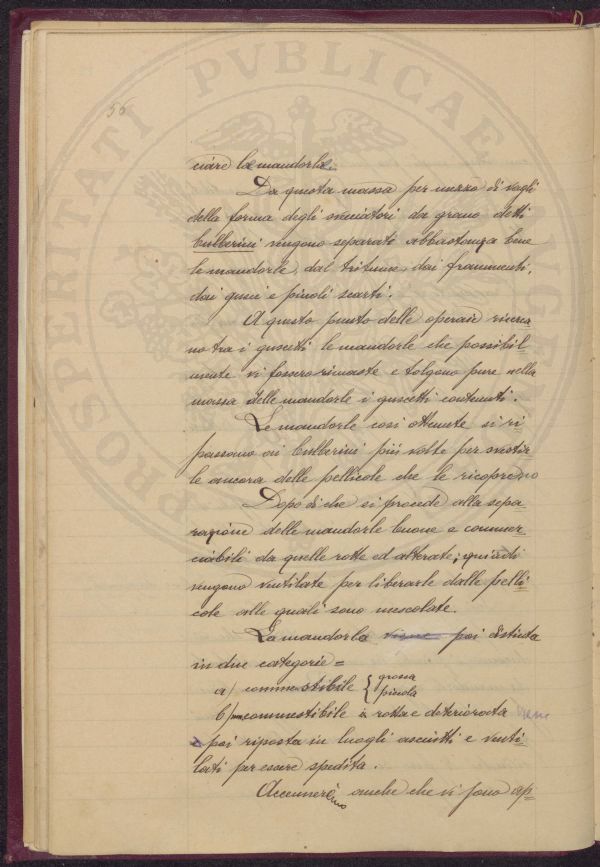 56
PROSPERITATI PVBLICAE
ciare la mandorla.
Da questa massa per mezzo di vagli
della forma degli svecciatori da grano detti
bullerini vengono separati abbastanza bene
le mandorle, dal tritume, dai frammenti,
dai gusci e pinoli scarti.
A questo punto delle operaie ricerca-
no tra i guscetti le mandorle che possibil-
mente vi fossero rimaste e tolgono pure nella
massa delle mandorle i guscetti contenuti.
Le mandorle così ottenute si ri-
passano ai bullerini più volte per svestir-
le ancora delle pellicole che le ricoprono
Dopo di che si procede alla sepa-
razione delle mandorle buone e commer-
ciabili da quelle rotte ed alterate; quindi
vengono ventilate per liberarle dalle pelli-
cole alle quali sono mescolate.
La mandorla viene poi distinta
in due categorie =
a) commestibile { grossa
piccola
b) commestibile rotta e deteriorata viene
poi riposta in luoghi asciutti e venti-
lati per essere spedita.
Accennerò anche che vi sono ap-